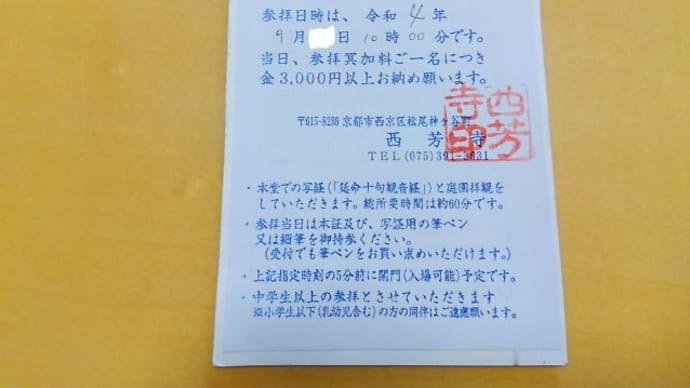 参拝日時は、令和 4 年
9月 日 10時 00分です。
当日、参拝冥加料ご一名につき
金3,000円以上お納め願います。
〒615-8286 京都市西京区松尾神ヶ谷町
西芳寺
TEL(075)391-3631
西芳寺印
・本堂での写経(「延命十句観音経」)と庭園拝観を
していただきます。総所要時間は約60分です。
・参拝当日は本証及び、写経用の筆ペン
又は細筆を御持参ください。
(受付でも筆ペンをお買い求めいただけます。)
・上記指定時刻の5分前に開門(入場可能)予定です。
・中学生以上の参拝とさせていただきます
※小学生以下(乳幼児含む)の方の同伴はご遠慮願います。